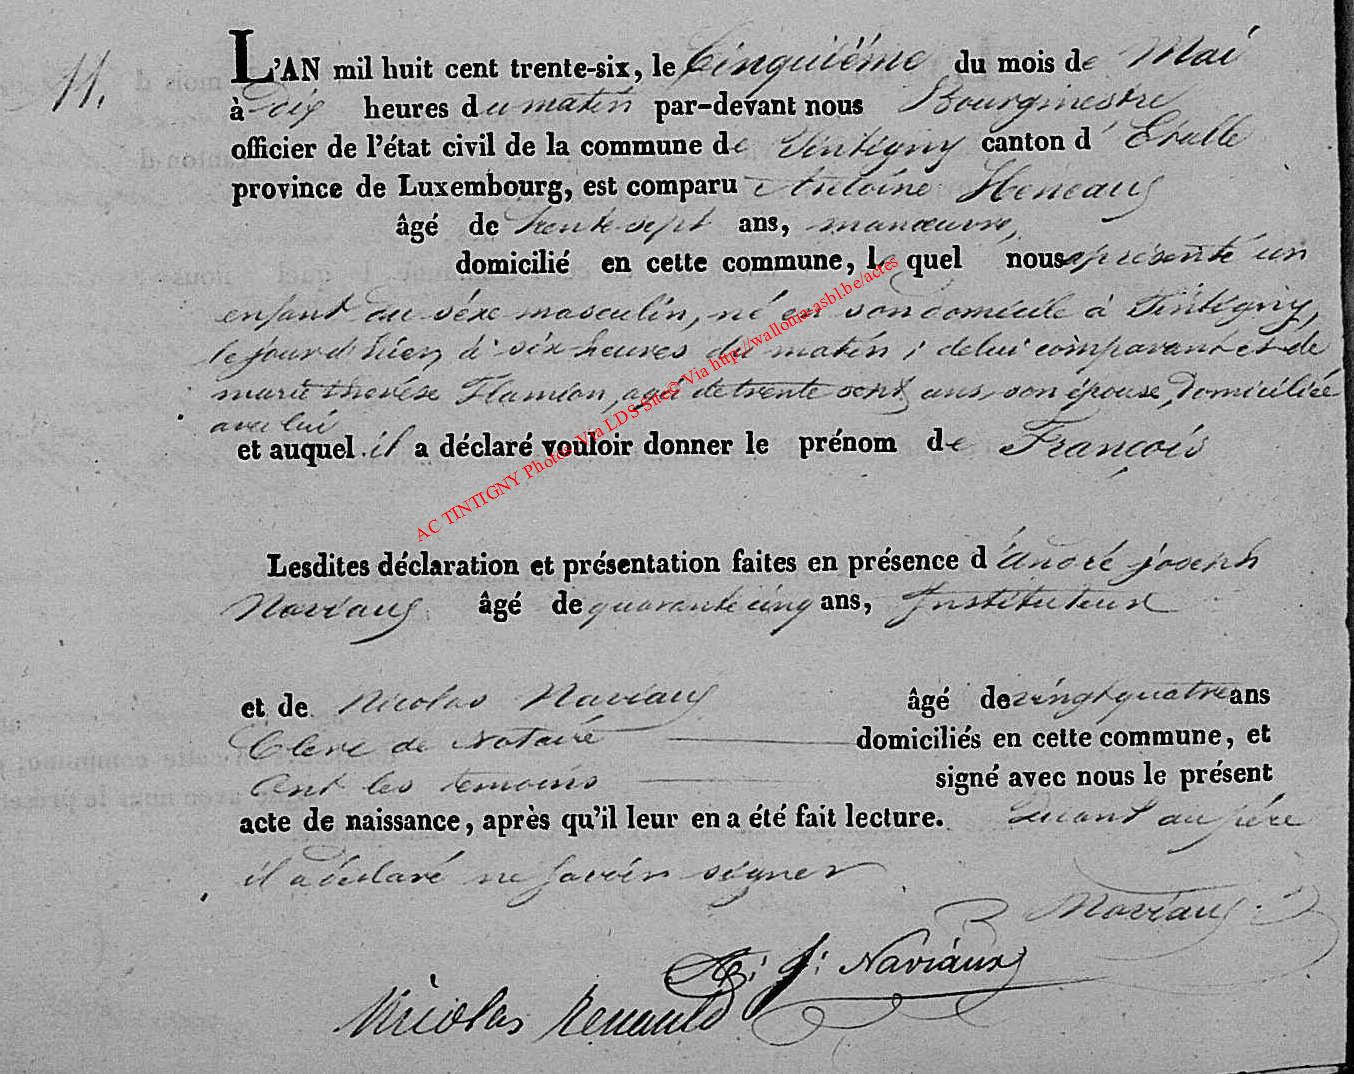 11.
L'AN mil huit cent trente-six, le Cinquiéme du mois de Mai
à dix heures du matin par-devant nous Bourgmestre
officier de l'état civil de la commune de Tintigny canton d' Etalle
province de Luxembourg, est comparu Antoine Heneaux
âgé de trente-sept ans, manœuvre,
domicilié en cette commune, le quel nous a présenté un
enfant du séxe masculin, né en son domicile à Tintigny,
le jour d'hier à six heures du matin ; de lui comparant et de
marie therèse Flamion, agé de trente sept ans, son épouse, domiciliée
avec lui
et auquel il a déclaré vouloir donner le prénom de François
Lesdites déclaration et présentation faites en présence d'andré joseph
Naviaux âgé de quarante cinq ans, Instituteur
et de Nicolas Naviaux âgé de vingt quatre ans
Clerc de Notaire domiciliés en cette commune, et
ont les temoins signé avec nous le présent
acte de naissance, après qu'il leur en a été fait lecture. Quant au père
il a déclaré ne savoir signer
Naviaux
A: J: Naviaux
Nicolas Renauld
AC TINTIGNY Photos Via LDS Site© Via http://wallonia-asbl.be/actes